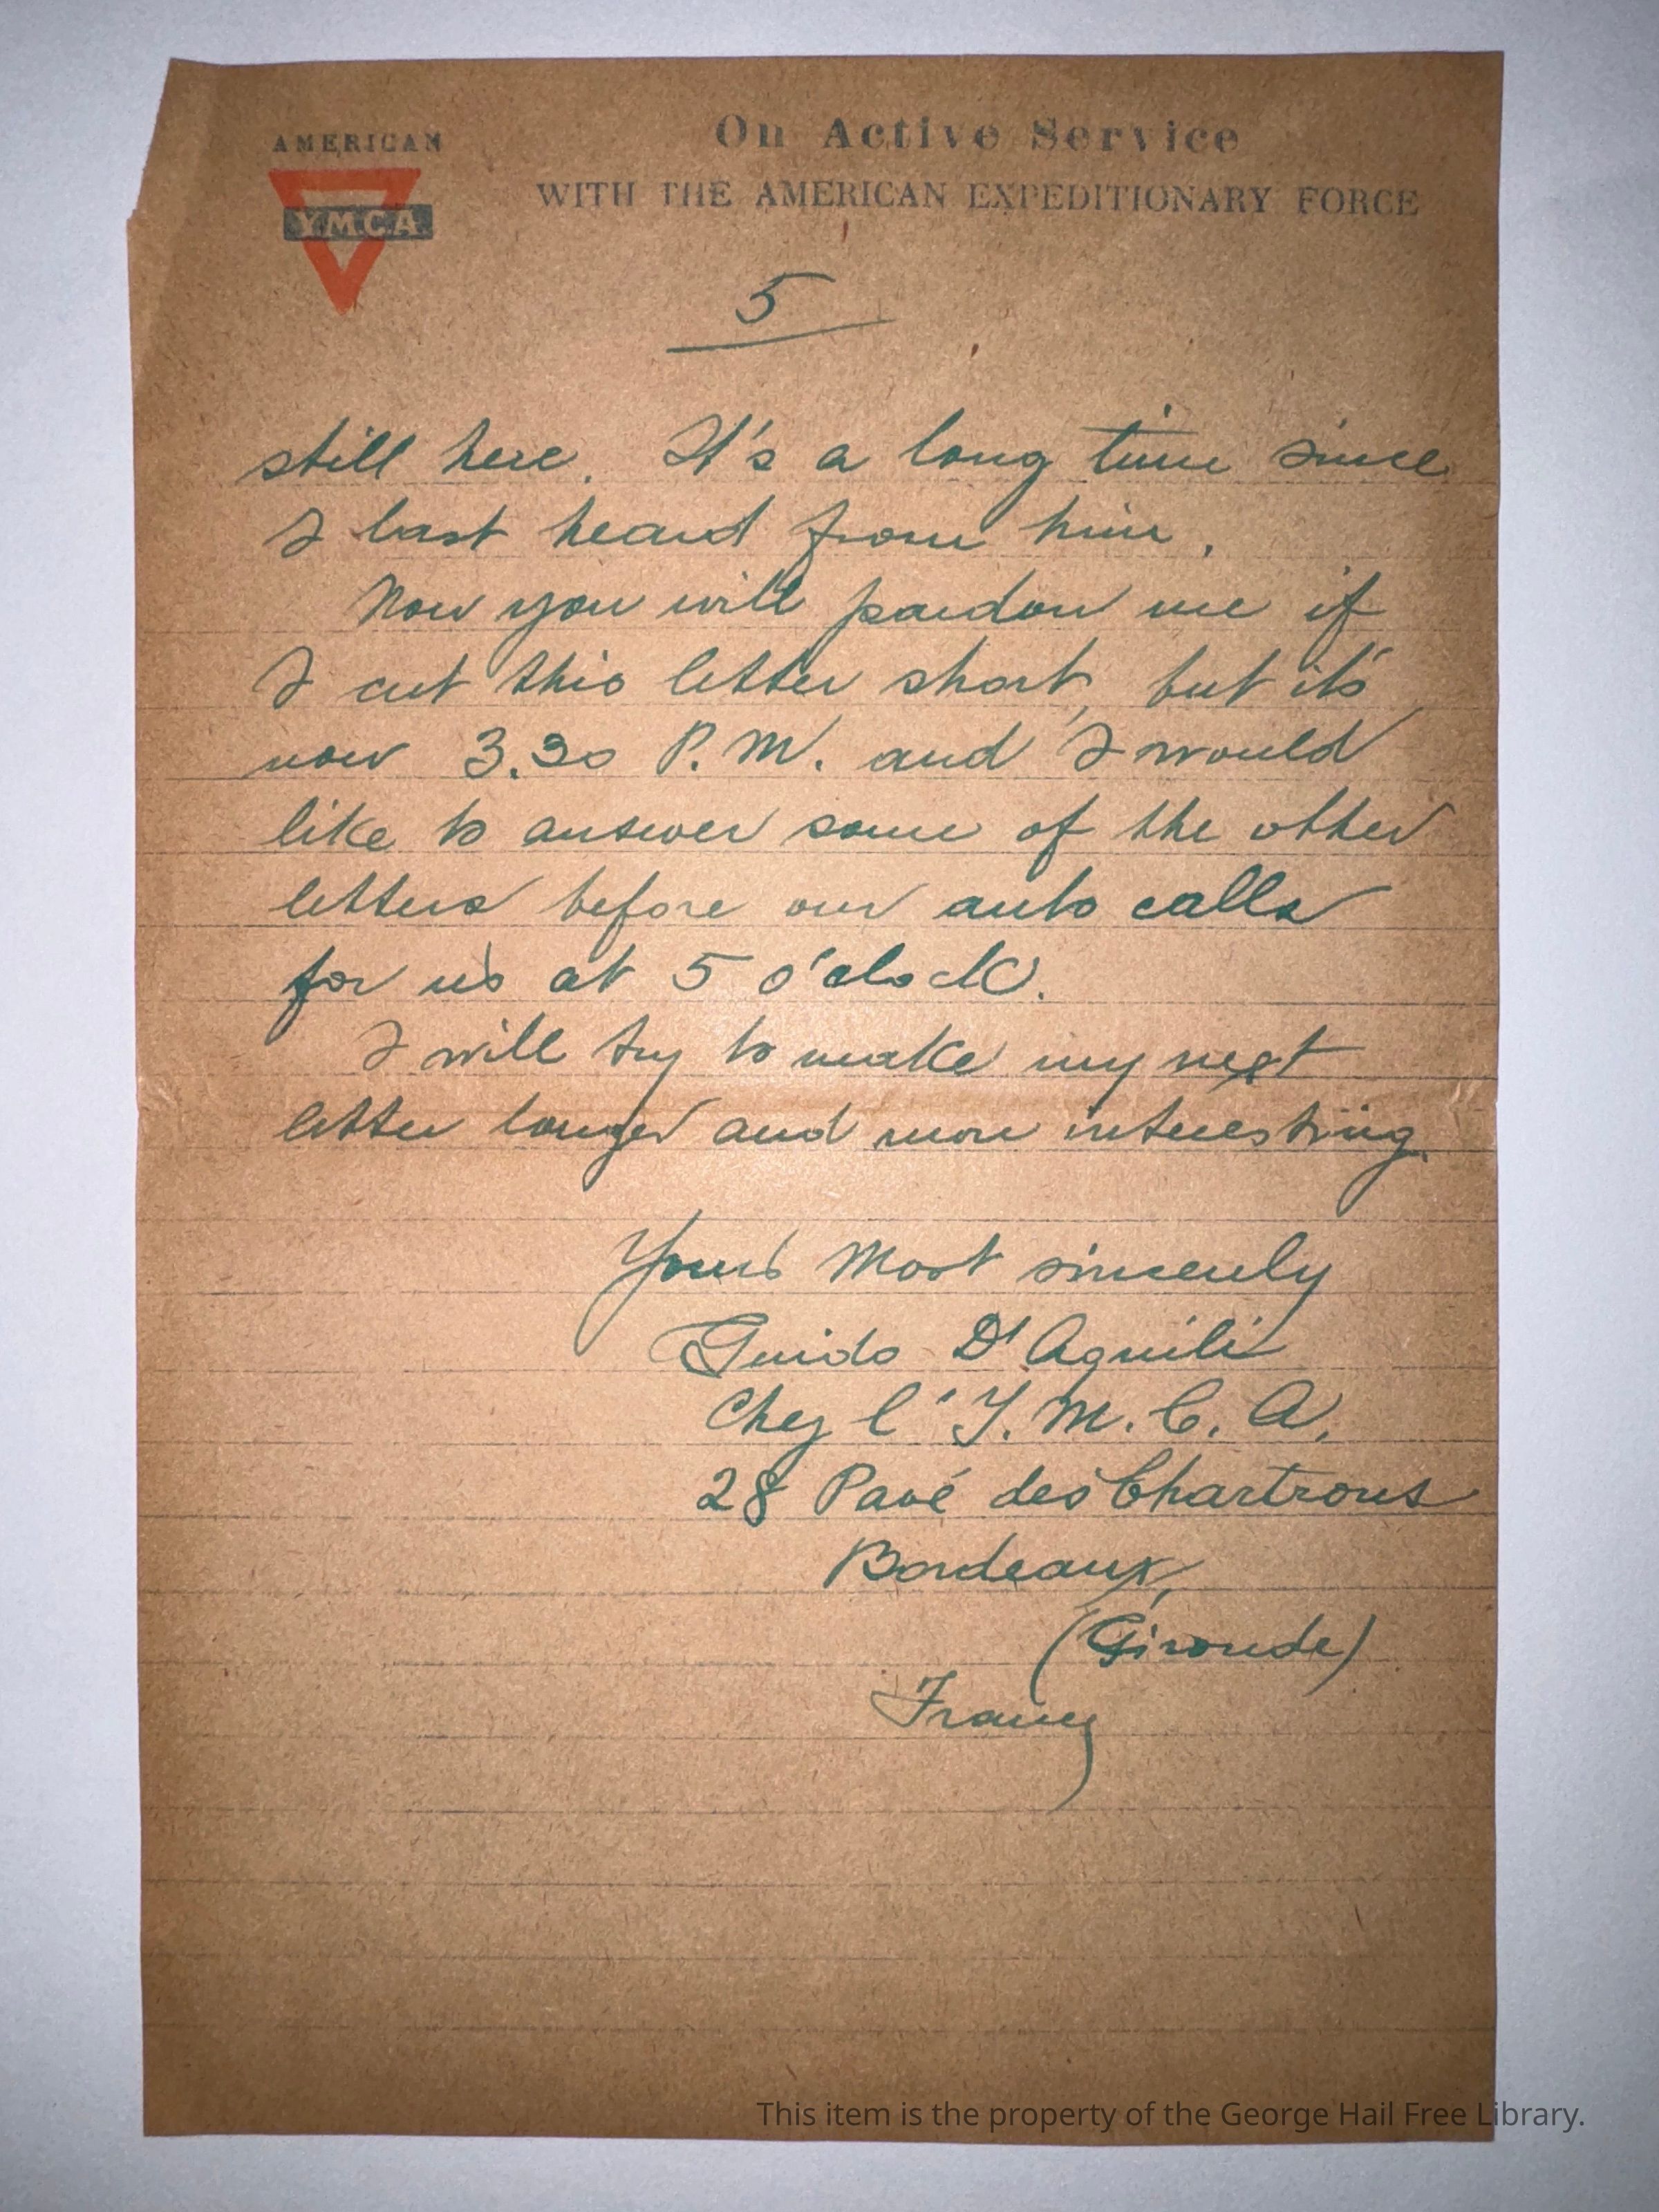 AMERICAN
Y.M.C.A.
On Active Service
WITH THE AMERICAN EXPEDITIONARY FORCE
5
still here. It's a long time since
I last heard from him.
Now you will pardon me if
I cut this letter short, but it's
now 3.30 P.M. and I would
like to answer some of the other
letters before our auto calls
for us at 5 o'clock.
I will try to make my next
letter longer and more interesting.
Yours Most sincerely
Guido D'Aquili
Chez l'Y.M.C.A.
28 Pavé des Chartrons
Bordeaux,
(Gironde)
France
This item is the property of the George Hail Free Library.